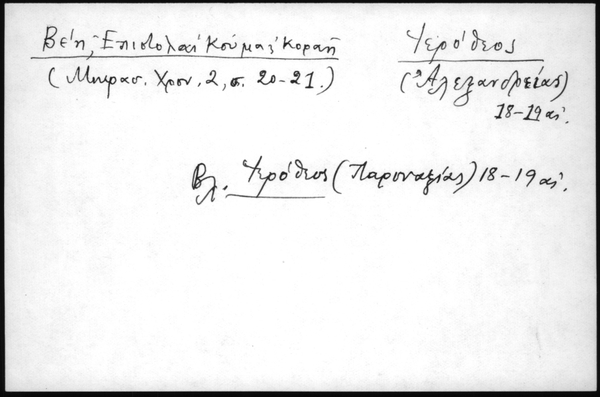 Βέη, Ἐπιστολαὶ Κούμα & Κοραῆ
(Μικρασ. Χρον, 2, σ. 20-21.)
Ἱερόθεος
(Ἀλεξανδρείας)
18-19 αἰ.
Βλ. Ἱερόθεος (Παροναξίας) 18-19 αἰ.